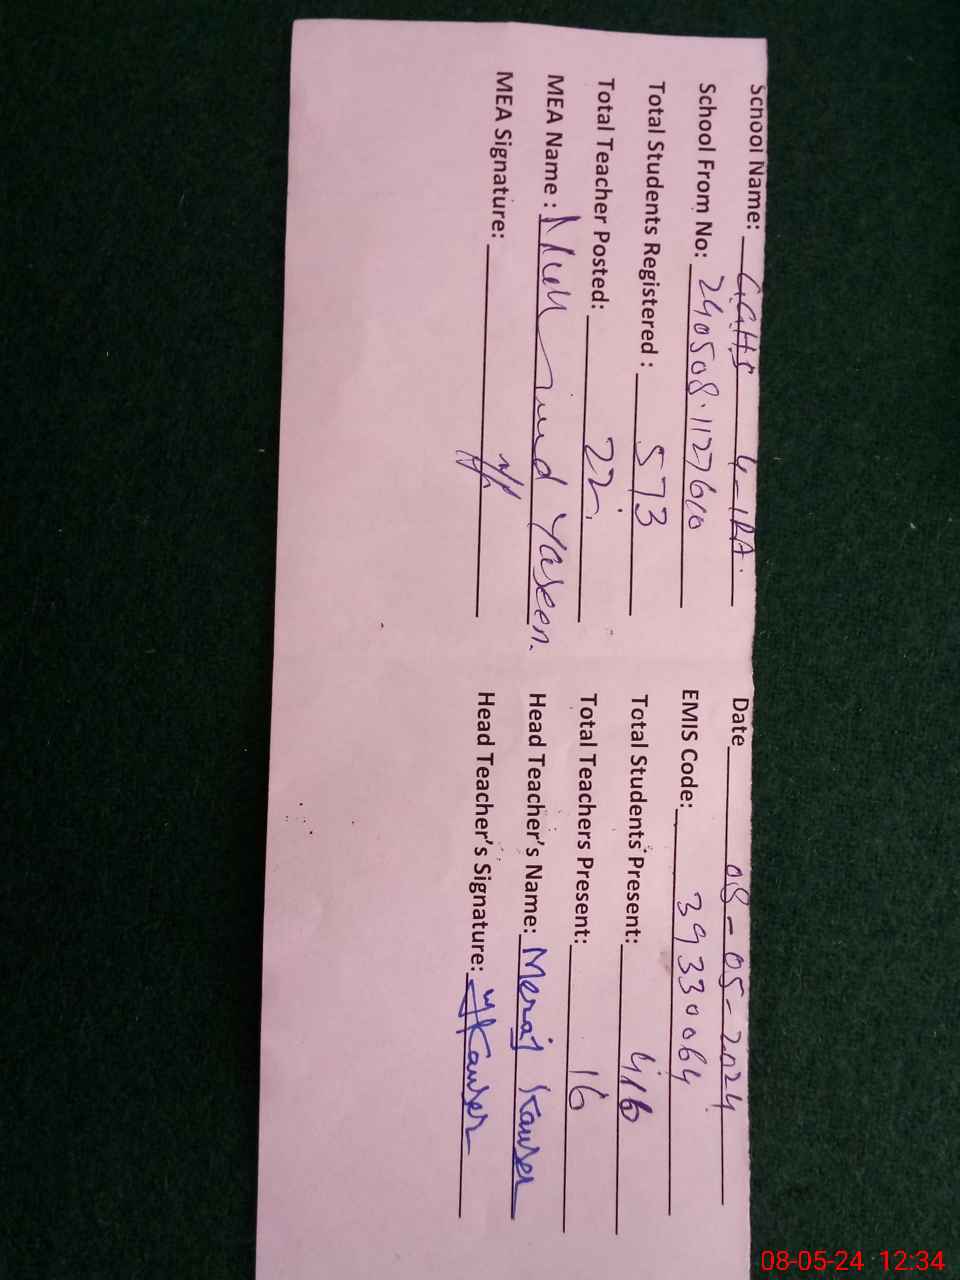 School Name: GGHS 4-1RA. Date 08-05-2024
School From No: 240508.1127610 EMIS Code: 39330064
Total Students Registered : 573 Total Students Present: 416
Total Teacher Posted: 22. Total Teachers Present: 16
MEA Name : Yaseen. Head Teacher's Name: Meraj Kauser
MEA Signature: Head Teacher's Signature: Kauser
08-05-24 12:34